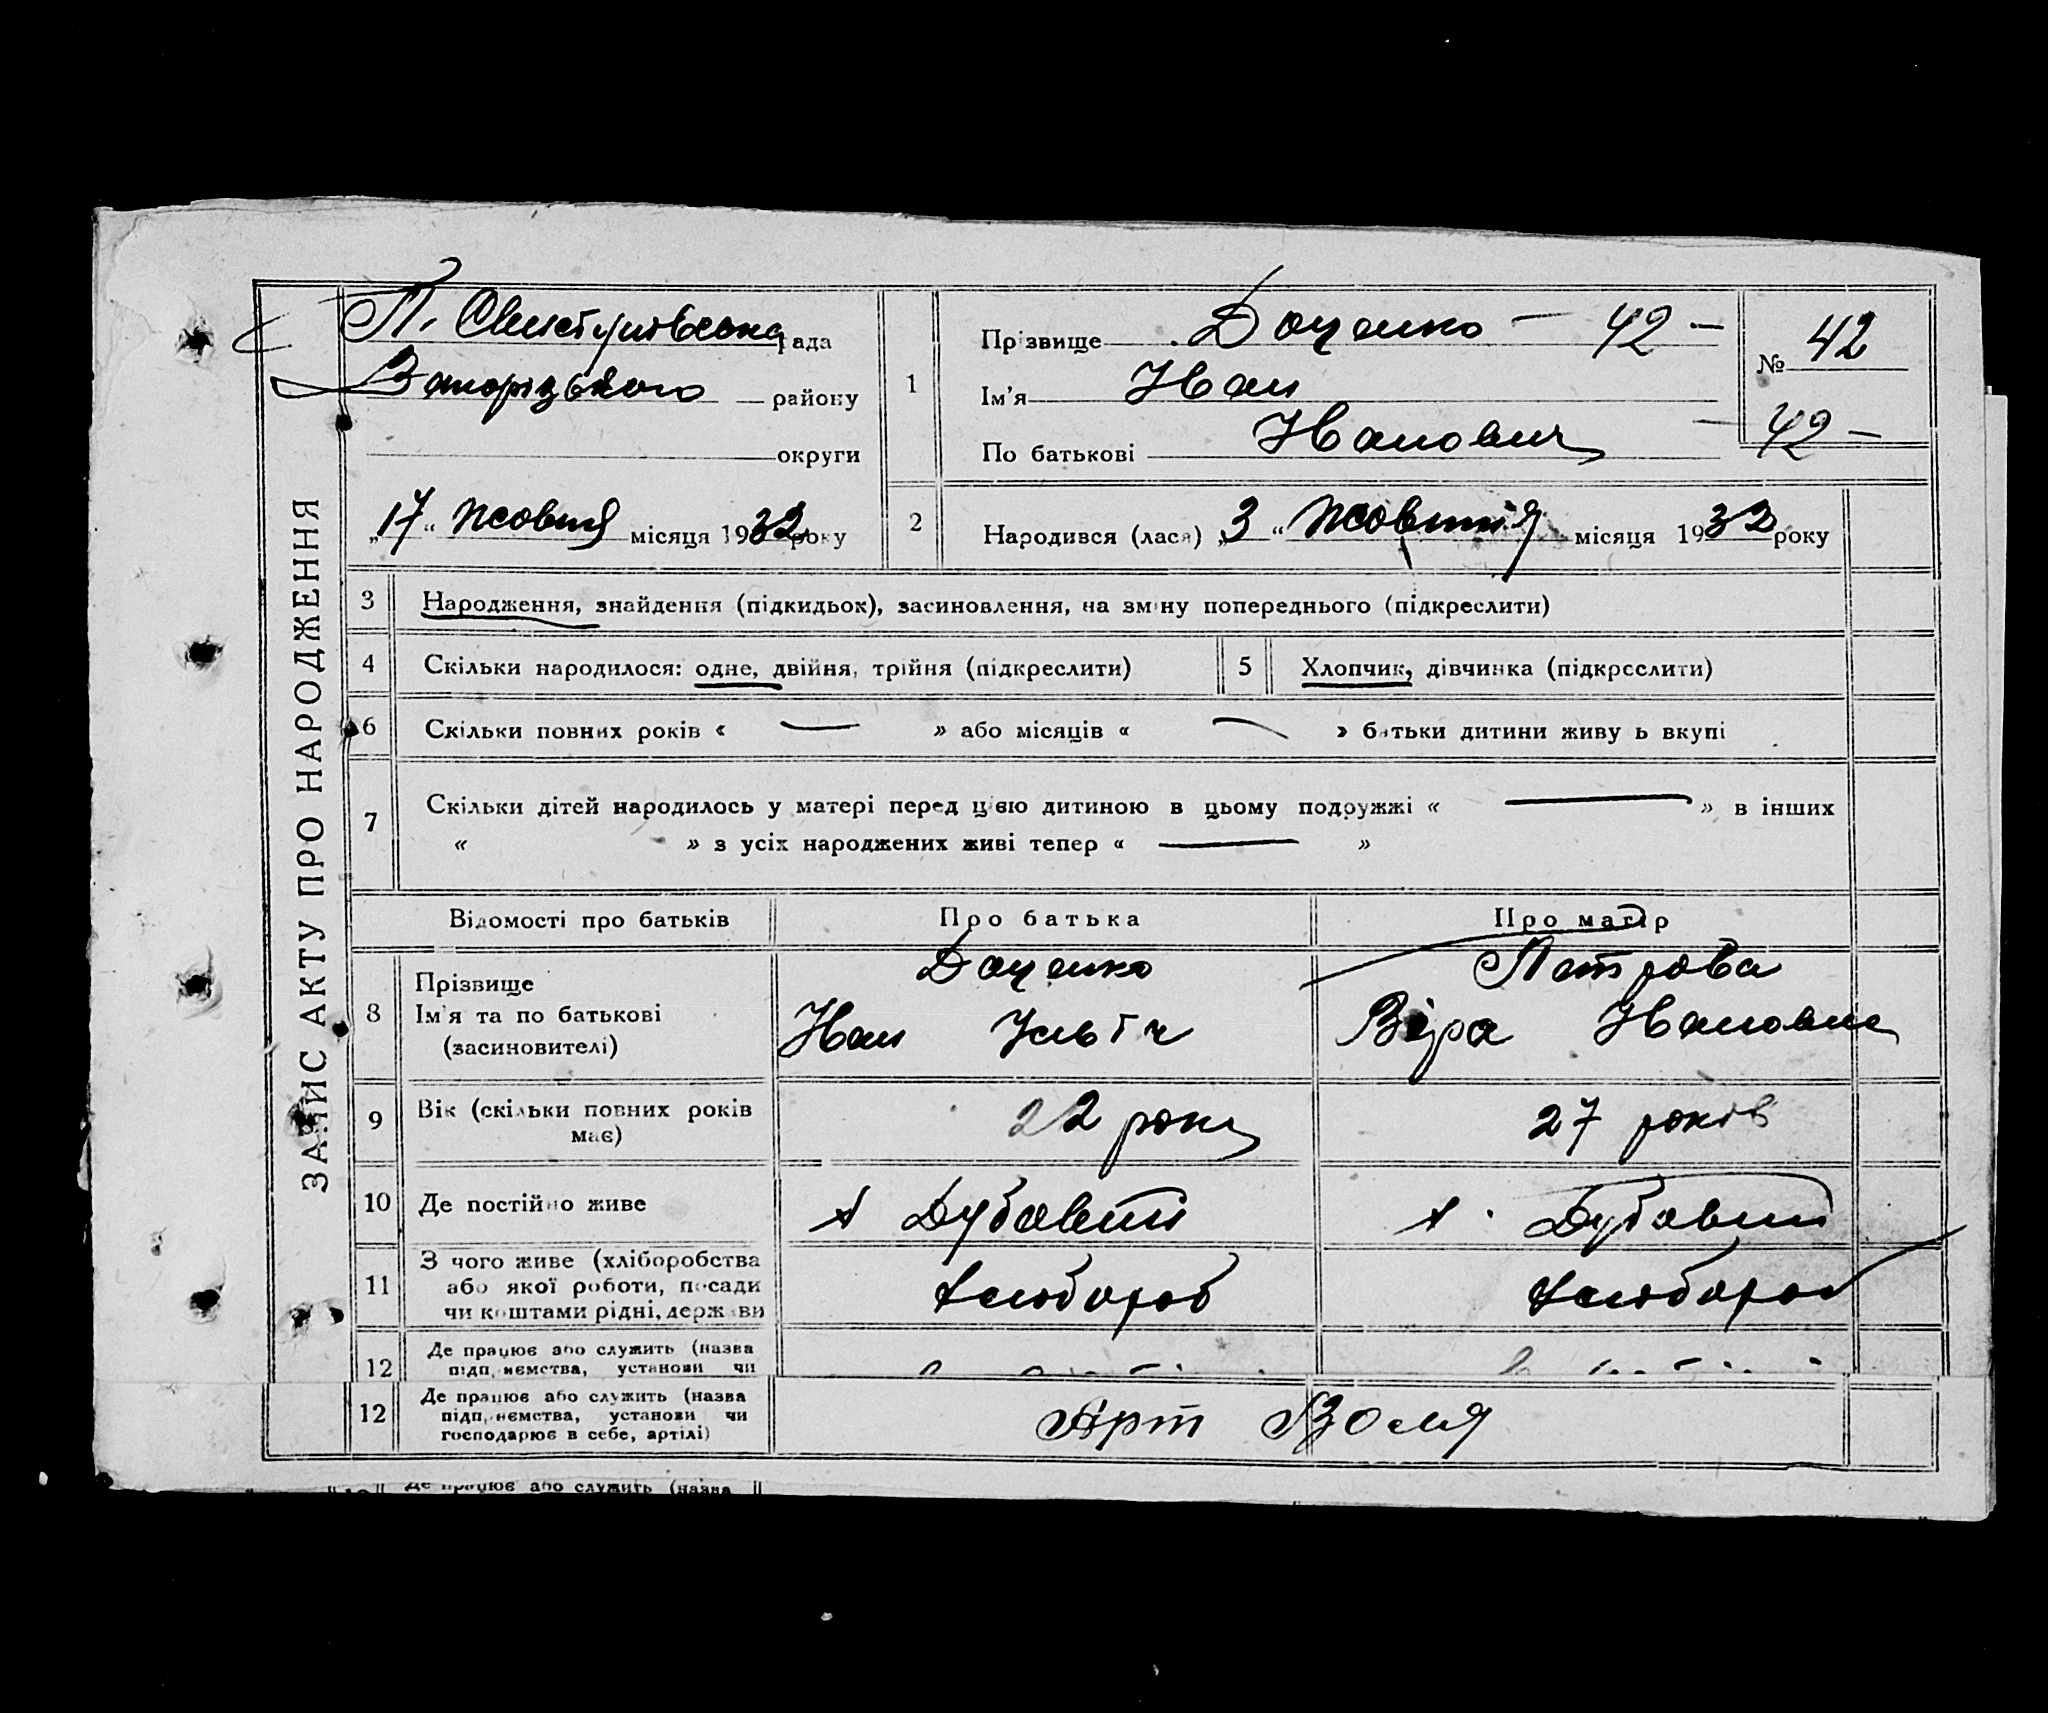 ЗАПИС АКТУ ПРО НАРОДЖЕННЯ
П. Свистунівська рада
Запорізького району
округи
„17“ Жовтня місяця 1932 року
1
Прізвище Доценко — 42 —
Ім'я Иван
По батькові Иванович
№ 42
— 42 —
2
Народився (лася) „3“ Жовтня місяця 1932 року
3 Народження, знайдення (підкидьок), засиновлення, на зміну попереднього (підкреслити)
4 Скільки народилося: одне, двійня, трійня (підкреслити)
5 Хлопчик, дівчинка (підкреслити)
6 Скільки повних років « — » або місяців « — » батьки дитини живуть вкупі
7 Скільки дітей народилось у матері перед цією дитиною в цьому подружжі « — » в інших
« » з усіх народжених живі тепер « — »
Відомості про батьків Про батька Про матір
8 Прізвище
Ім'я та по батькові
(засиновителі)
Доценко
Иван Ильїч
Петрова
Віра Ивановна
9 Вік (скільки повних років
має)
22 роки 27 років
10 Де постійно живе
х Дубовий х. Дубовий
11 З чого живе (хліборобства
або якої роботи, посади
чи коштами рідні, держави
хлібороб хлібороб
12 Де працює або служить (назва
підприємства, установи чи
12 Де працює або служить (назва
підприємства, установи чи
господарює в себе, артілі)
Арт Воля
Де працює або служить (назва